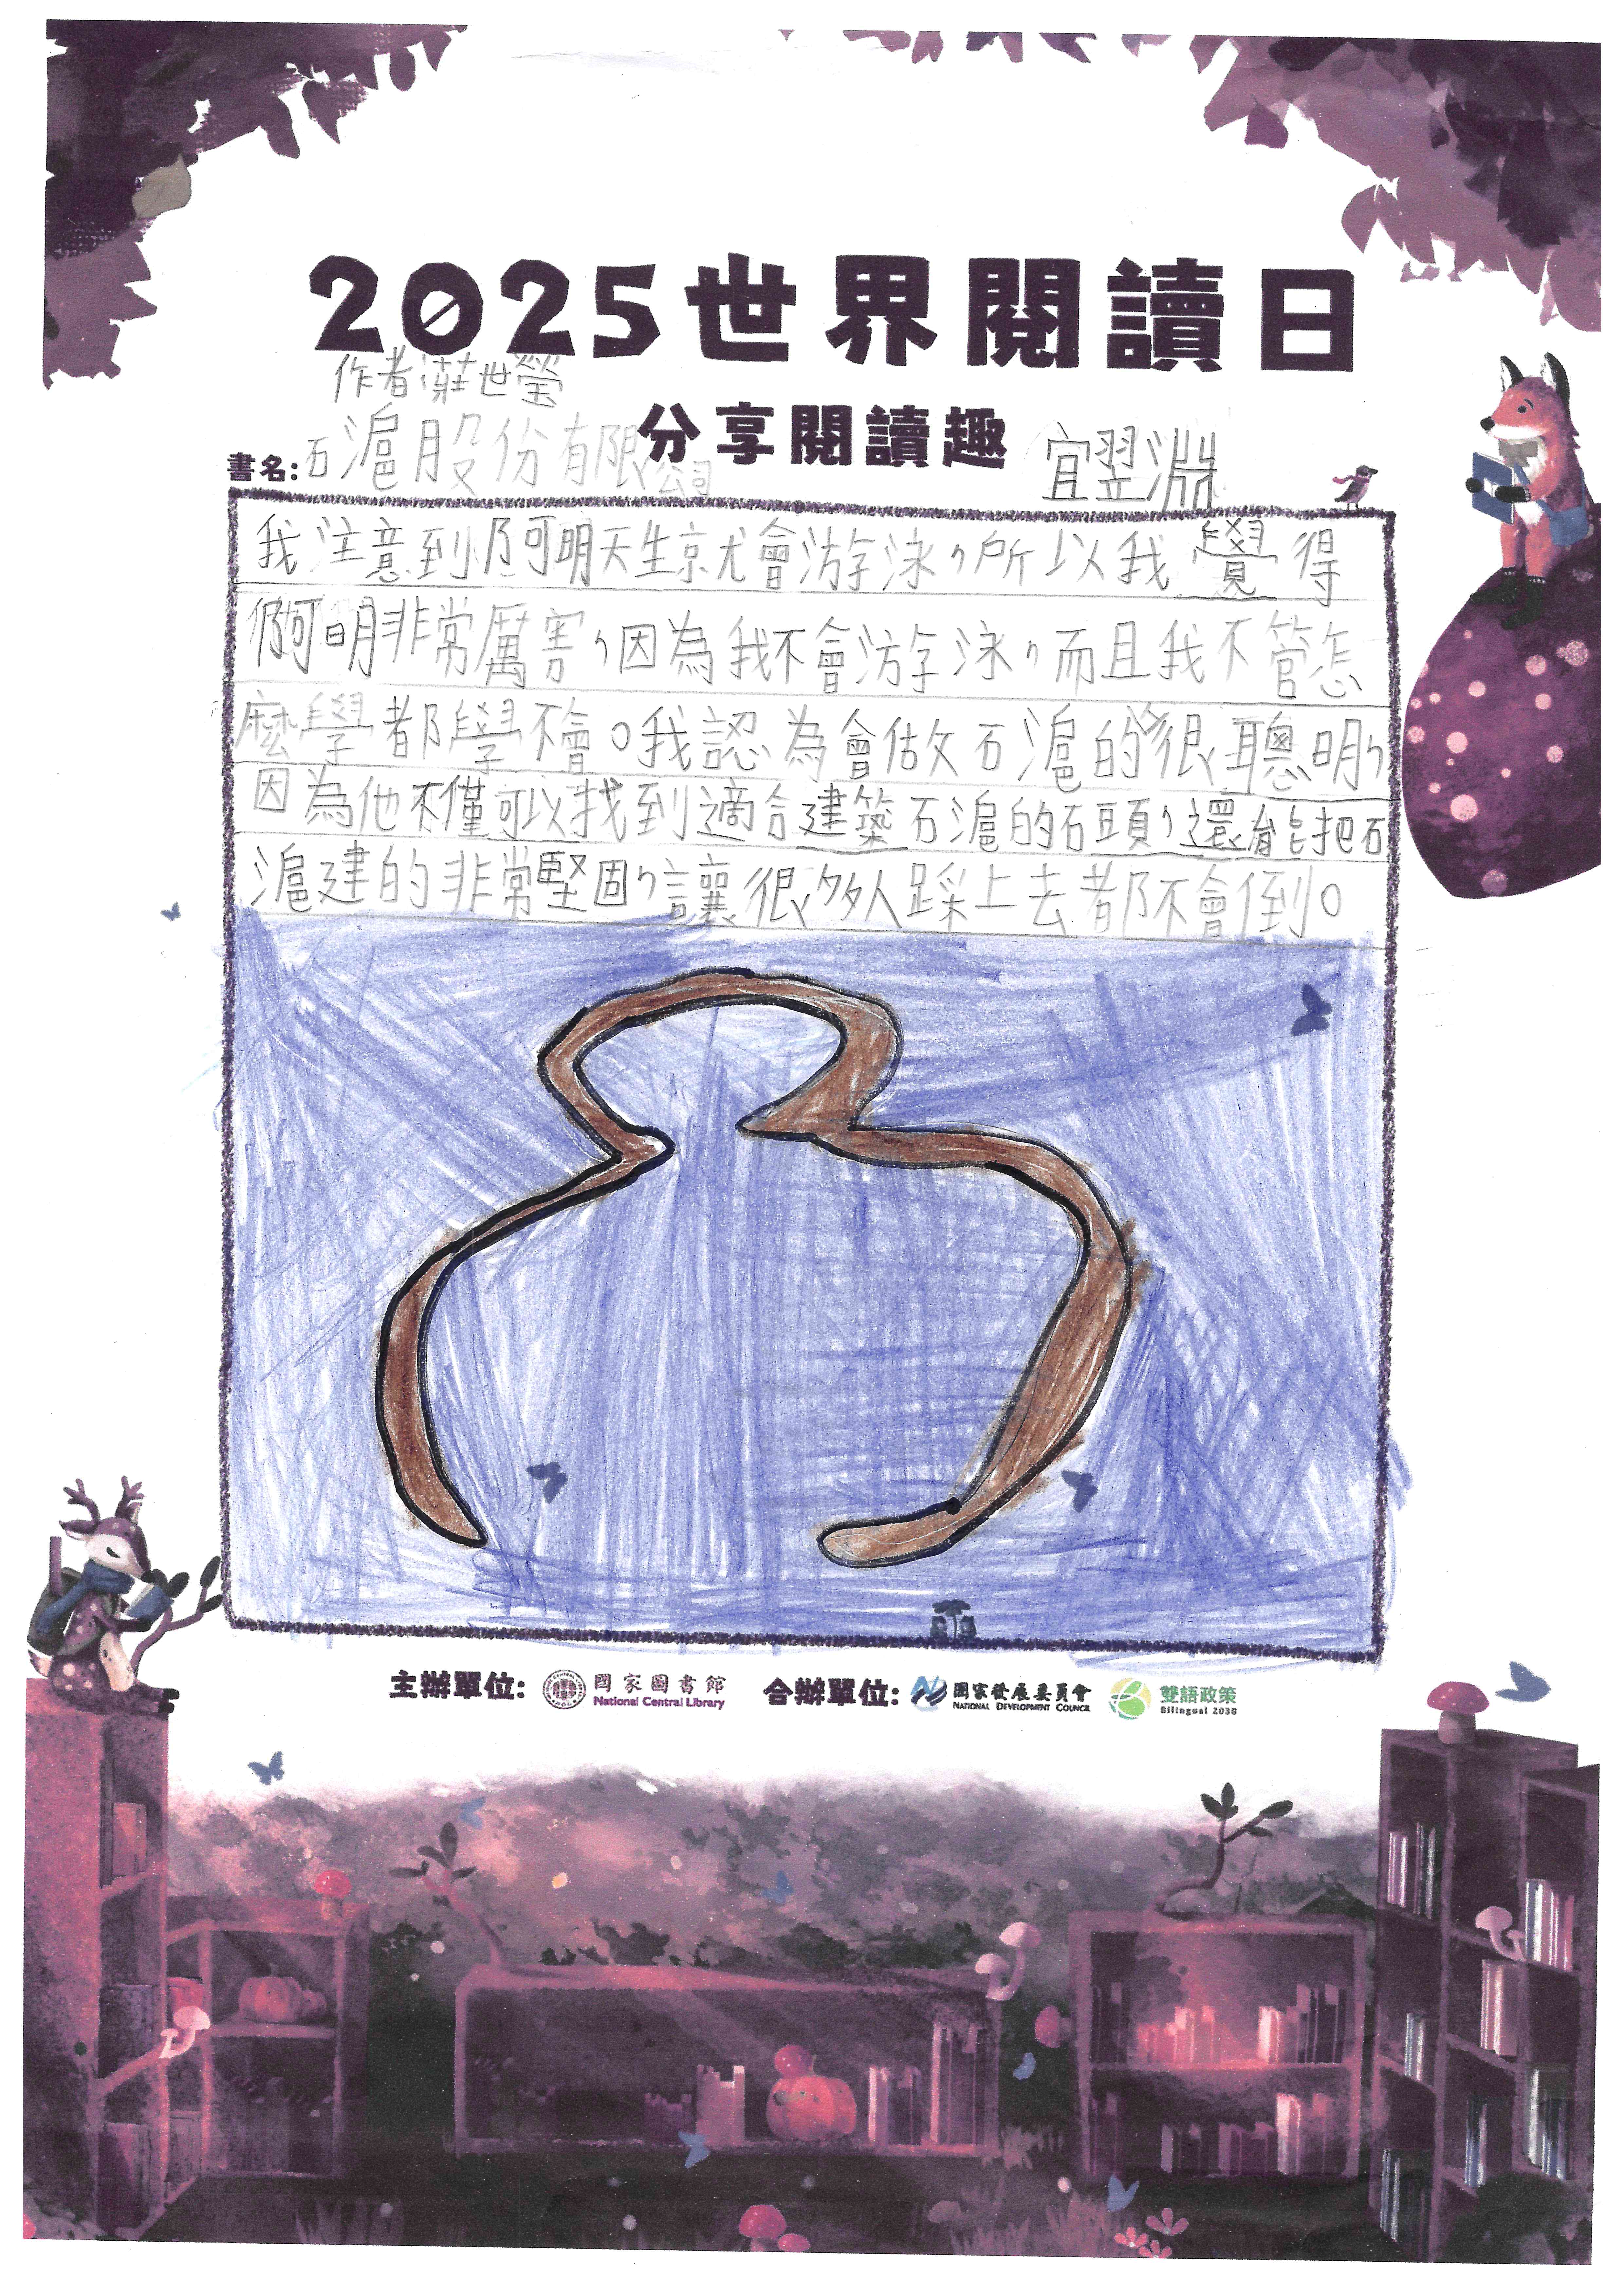 2025世界閱讀日
作者莊世瑩
分享閱讀趣
書名:石滬股份有限公司
宜翌淵
我注意到阿明天生就會游泳,所以我覺得
阿明非常厲害,因為我不會游泳,而且我不管怎
麼學都學不會。我認為會做石滬的很聰明,
因為他不僅可以找到適合建築石滬的石頭,還能把石
滬建的非常堅固,讓很多人踩上去都不會倒。
主辦單位: 國家圖書館 National Central Library 合辦單位: 國家發展委員會 NATIONAL DEVELOPMENT COUNCIL 雙語政策 Bilingual 2030